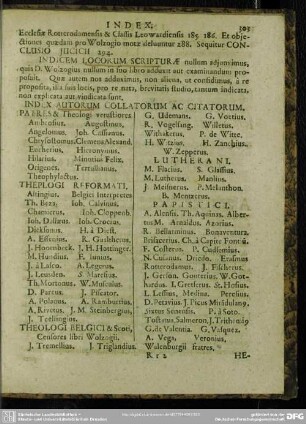 INDEX. 303
Ecclesiæ Rotterodamensis & Classis Leowardiensis 185. 186. Et objectiones quædam pro Wolzogio motæ deluuntur 288. Sequitur CONCLUSIO JUDICII 294.
INDICEM LOCORUM SCRIPTURÆ nullum adjunximus,
quia D. Wolzogius nullum in suo libro adduxit aut examinandum proposuit.
non explicata aut vindicata sunt.
INDEX AUTORUM COLLATORUM AC CITATORUM.
PATRES & Theologi vetustiores
Ambrosius, Augustinus,
Angelomus, Joh. Cassianus,
Chrysostomus, Clemens Alexand.
Eucherius, Hieronymus,
Hilarius, Minutius Felix,
Origenes, Tertullianus,
Theophylactus.
THEOLOGI REFORMATI.
Altingius, Belgici Interpretes
Th. Beza, Joh. Calvinus,
Chamierus, Joh. Cloppenb.
Joh. Dallæus, Joh. Crocius,
Dicksonus, H. à Diest,
A. Essenius, R. Gualtherus,
J. Hoornbeek, J. H. Hottinger,
M. Hundius, F. Junius,
J. à Lasco, A. Legerus,
J. Leusden, S. Maresius,
Th. Mortonus, W. Musculus,
D. Pareus, J. Piscator,
A. Polanus, A. Ramburtius,
A. Rivetus, J. M. Steinbergius,
J. Teellingius,
THEOLOGI BELGICI & Scoti,
Censores libri Wolzogii.
J. Tremellius, J. Triglandius,
G. Udemans, G. Voetius,
R. Vogelsang, Willetus,
Witbakerus, P. de Witte,
H. Witzius, H. Zanchius,
W. Zepperus.
LUTHERANI.
M. Flacius, S. Glassius,
M. Lutherus, Manlius,
J. Meisnerus, P. Melanthon,
B. Mentzerus.
PAPISTICI.
A. Alensis, Th. Aquinas, Albertus M. Arnaldus, Azorius,
R. Bellarminus, Bonaventura,
P. Costerus,
N. Cusanus, Driedo, Erasmus
Rotterodamus, J. Fischerus,
J. Gerson, Gunterius,
L. Lessius, Medina, Peresius,
D. Petavius, J. Picus Mirandulanus,
Sixtus Senensis, P. à Soto,
Tostatus, Salmeron, J. Trithemius
G. de Valentia, G. Vasquez,
A. Vega, Veronius,
Walenburgii fratres,
R r 2 HE-